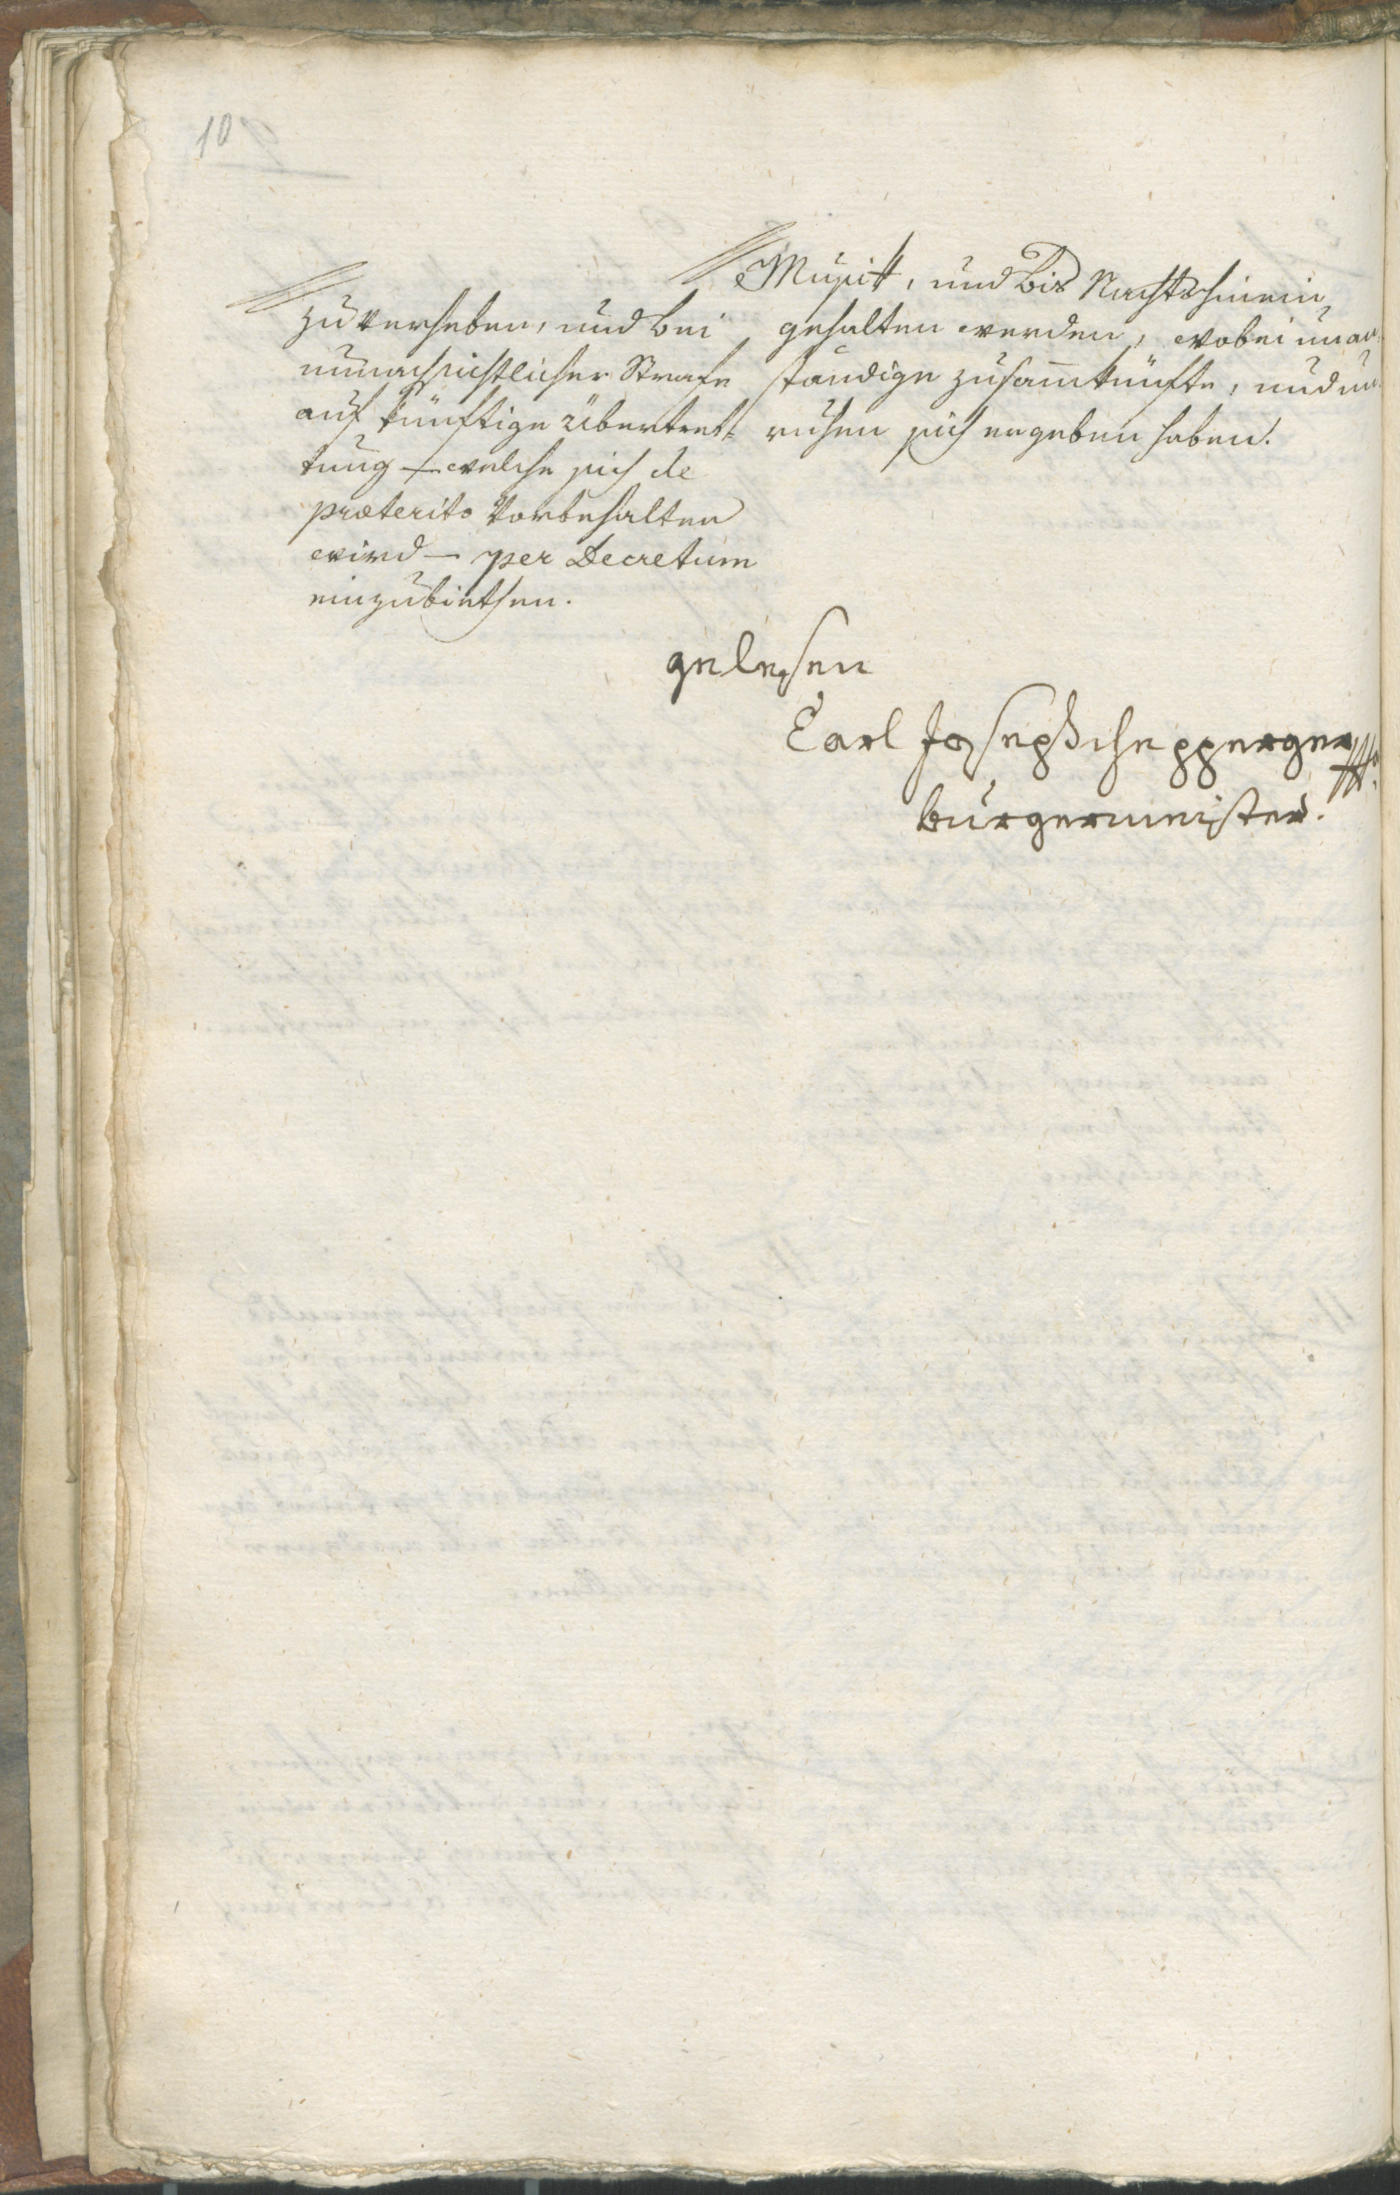 10
zu verheben, und bei
unnachsichtlicher Strafe
auf künftige Übertret-
tung – welche sich de
præterito Vorbehalten
wird – per Decretum
einzubiethen.
Musik, und bis Nachts hinein
gehalten werden, wobei unan
ständige zusam̄künfte, und un
ruhen sich ergeben haben.
gelesen
Carl Joseph
burgermeister.